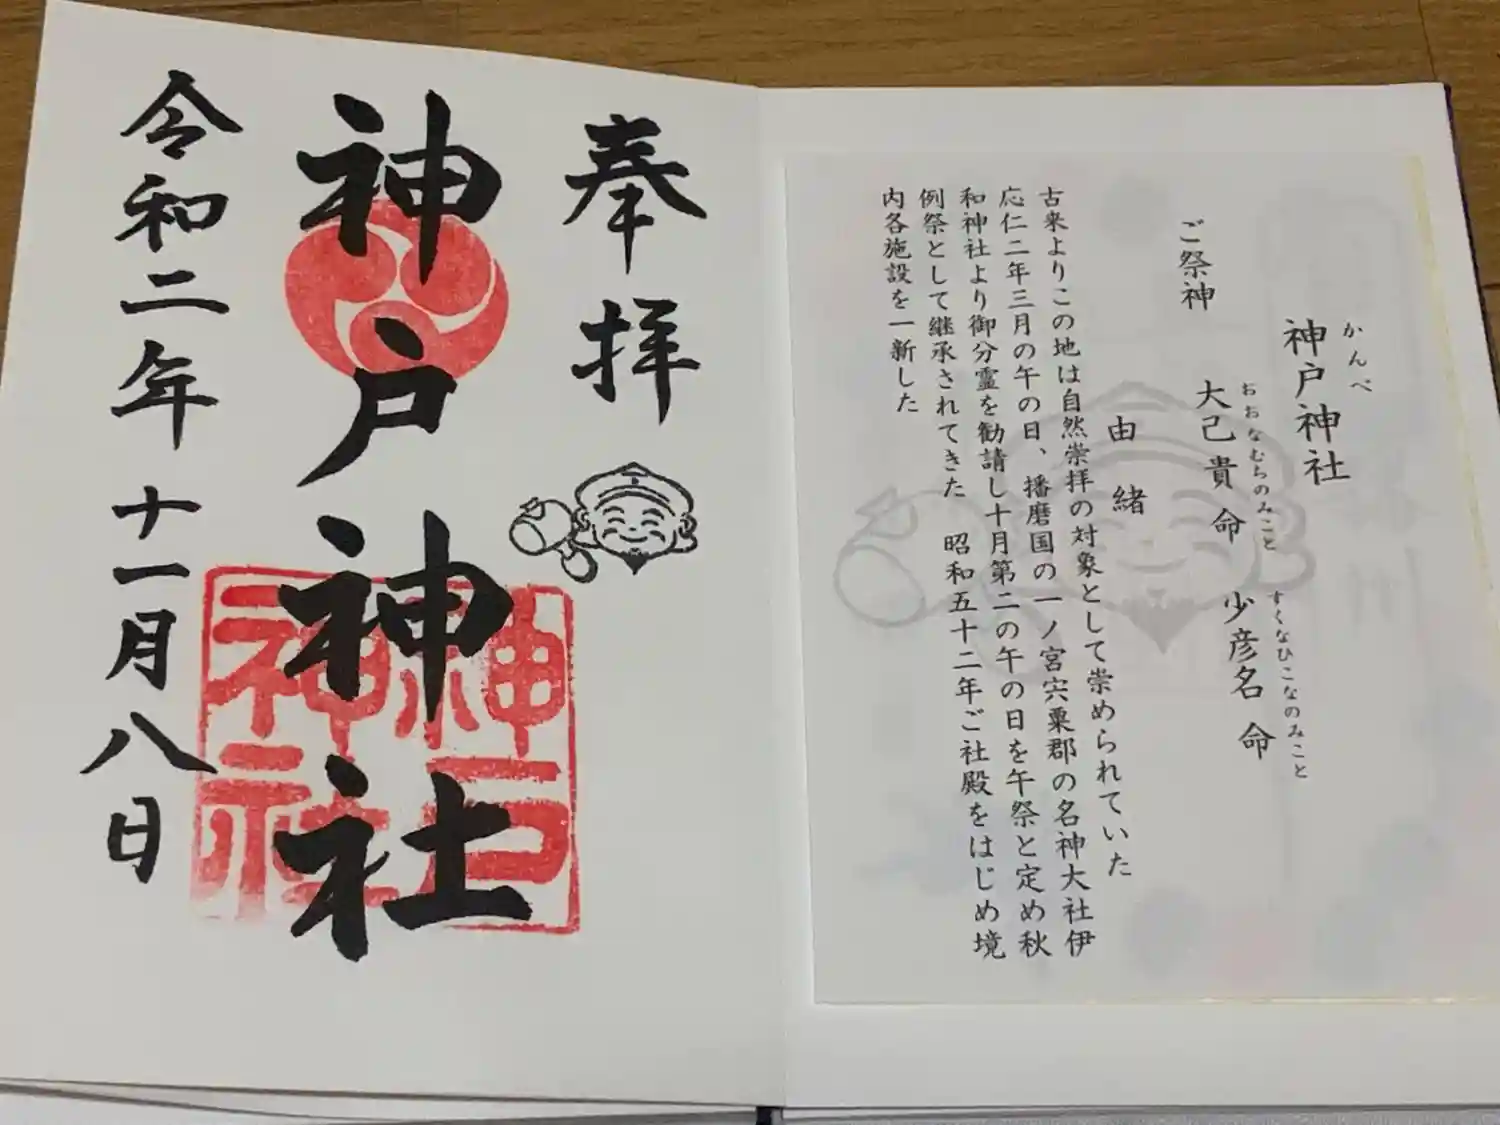 奉拝
神戸神社
令和二年十一月八日
神戸
神社
かんべ
神戸神社
ご祭神
おおなむちのみこと
大己貴命
すくなひこなのみこと
少彦名命
由緒
古来よりこの地は自然崇拝の対象として崇められていた
応仁二年三月の午の日、播磨国の一ノ宮宍粟郡の名神大社伊
和神社より御分霊を勧請し十月第二の午の日を午祭と定め秋
例祭として継承されてきた 昭和五十二年ご社殿をはじめ境
内各施設を一新した